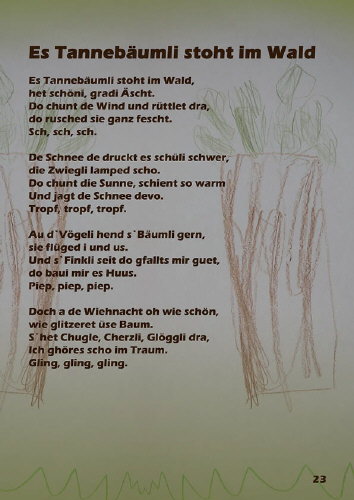 Es Tannebäumli stoht im Wald
Es Tannebäumli stoht im Wald,
het schöni, gradi Äscht.
Do chunt de Wind und rüttlet dra,
do rusched sie ganz fescht.
Sch, sch, sch.
De Schnee de druckt es schüli schwer,
die Zwiegli lamped scho.
Do chunt die Sunne, schient so warm
Und jagt de Schnee devo.
Tropf, tropf, tropf.
Au d`Vögeli hend s`Bäumli gern,
sie flüged i und us.
Und s`Finkli seit do gfallts mir guet,
do baui mir es Huus.
Piep, piep, piep.
Doch a de Wiehnacht oh wie schön,
wie glitzeret üse Baum.
S`het Chugle, Cherzli, Glöggli dra,
Ich ghöres scho im Traum.
Gling, gling, gling.
23